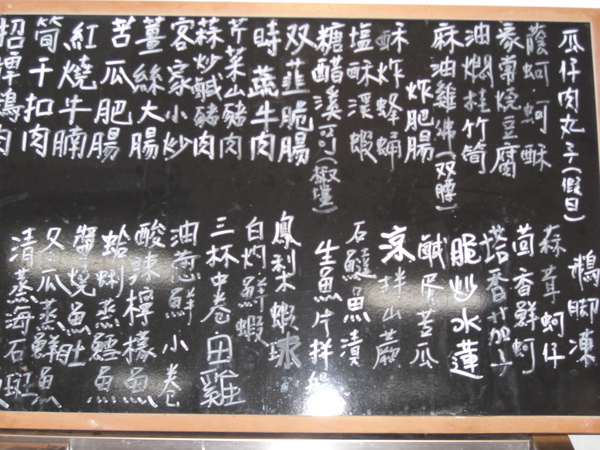 瓜仔肉丸子(假日)
蔭蚵.蚵酥
家常燒豆腐
油燜桂竹筍
麻油雞佛(双腰)
炸肥腸
酥炸蜂蛹
塩酥溪蝦
糖醋溪哥(椒塩)
双韮脆腸
時蔬牛肉
芹菜山豬肉
蒜炒鹹豬肉
客家小炒
薑絲大腸
苦瓜肥腸
紅燒牛腩
筍干扣肉
招牌鵝肉
鵝脚凍
蒜茸蚵仔
茴香鮮蚵
塔香茄子
脆炒水蓮
鹹蛋苦瓜
涼拌山蕨
生魚片拼盤
鳳梨蝦球
白灼鮮蝦
三杯中卷田雞
油蔥鮮小卷
酸辣檸檬魚
蛤蜊蒸鱈魚
醬燒魚肚
冬瓜蒸鮮魚
清蒸海石斑